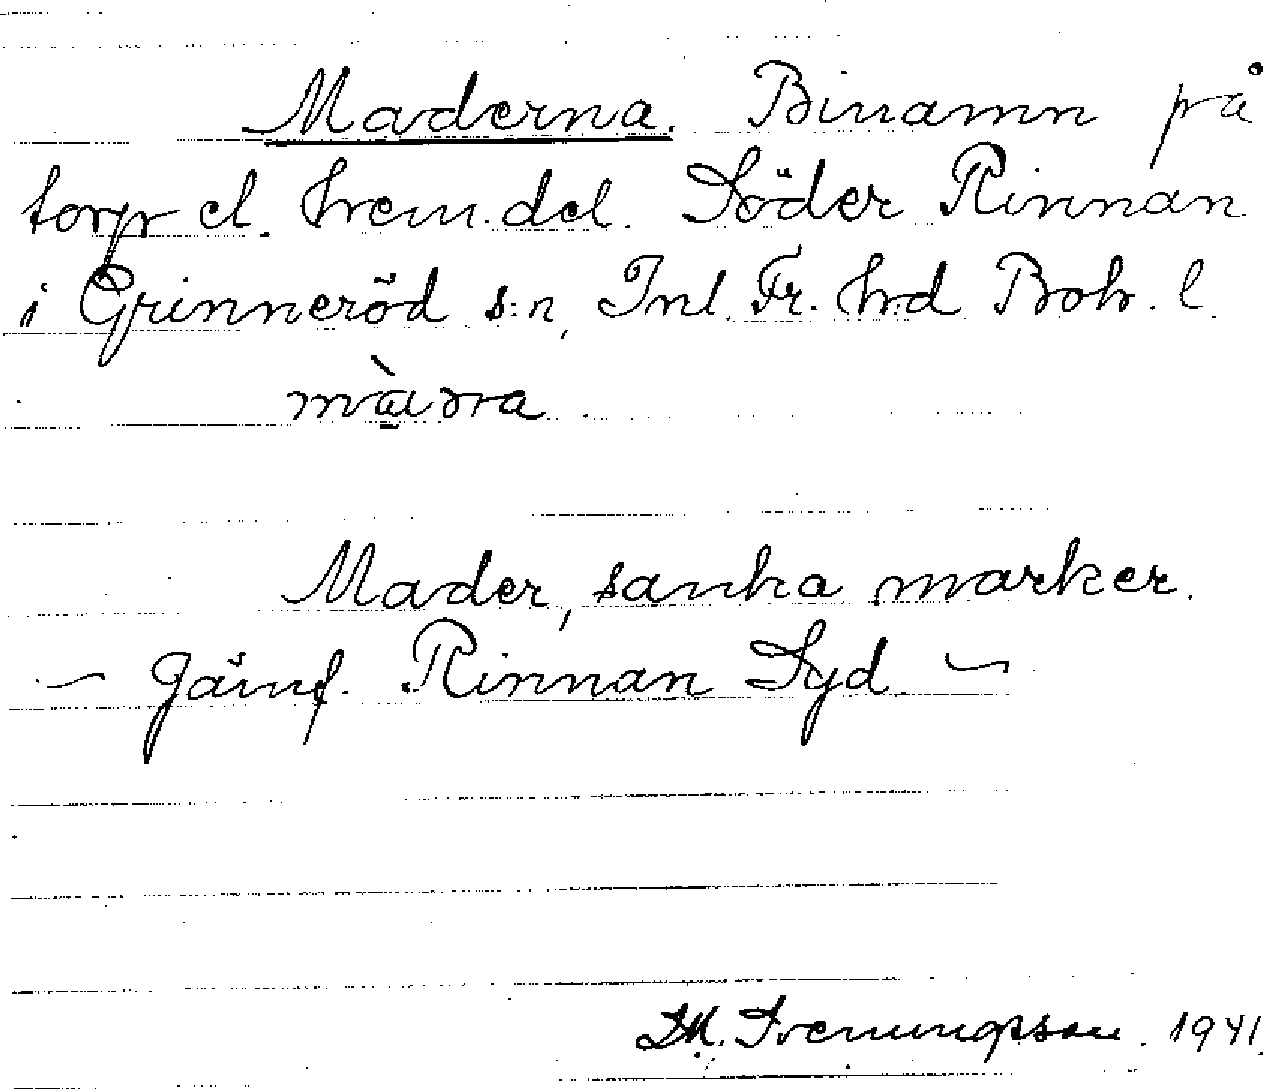 Maderna. Binamn på
torp el. hem.del. Söder Rinnan
i Grinneröd s:n, Inl. Fr. hd Boh. l.
Mader, sanka marker.
– Jämf. Rinnan Syd –
1941.